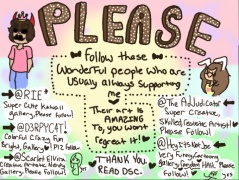 PLEASE
Follow these
Wonderful people who are
usually always supporting
me
@RIE*
Super Cute Kawaii
gallery, Please follow!
@D3RPYCAT!
Colorful Crazy Fun
Bright, Gallery Plz follow
@Scarlet Elvira
Creative Artistic Nerdy
Gallery, Please Follow!
Their Art is
AMAZING
To, you won't
regret it!
THANK YOU
READ DSC.
@The Adjudicator
Super Creative,
Skilled, Fantastic Artist!
Please Follow!
@Heyitsnot.be
Very Funny, Cartoony
Please Follow!
yes